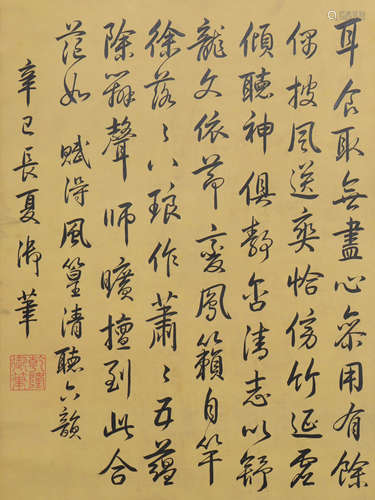 耳食取無盡心齋用有餘
偶披風送爽恰傍竹延虛
傾聽神俱靜含清志以舒
龍文依節變鳳籟自竿
徐落〻八琅作蕭〻五蘊
除辨聲師曠擅到此合
茫如 賦得風篁清聽六韻
辛巳長夏御筆
乾隆御筆